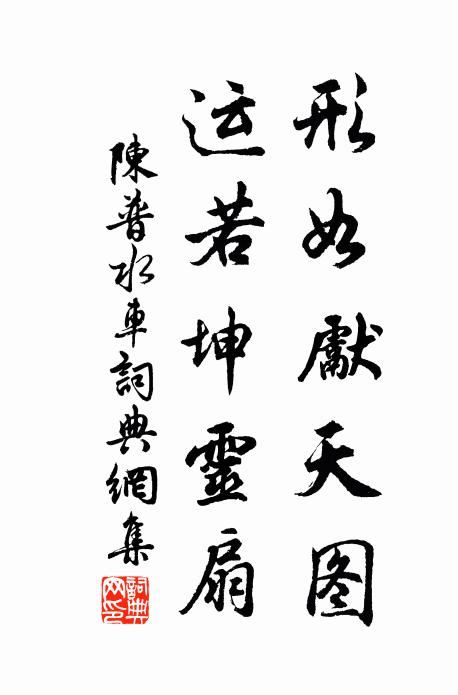 形如獻天图
运若坤靈扇
陳普水車詞典網集
詞典网印